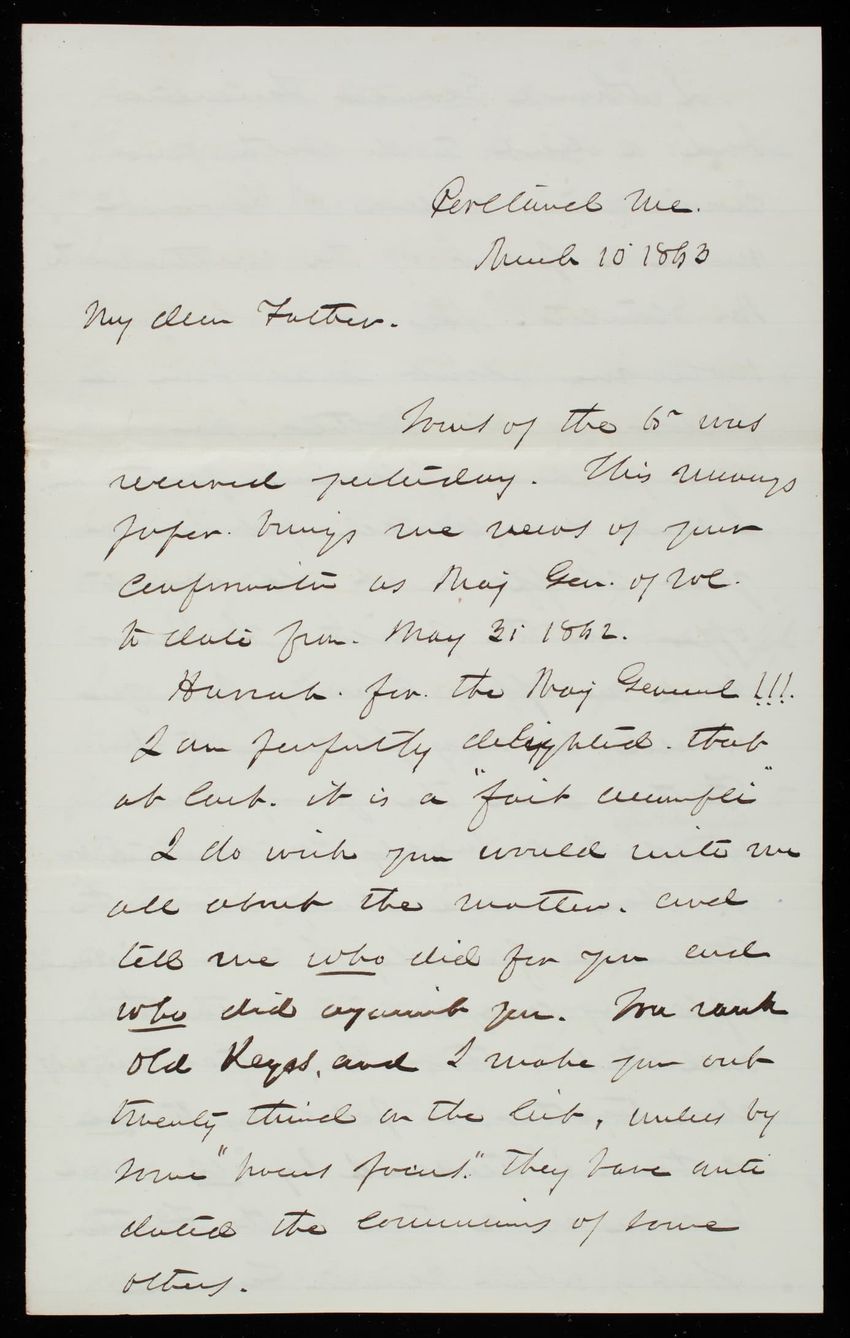 Portland Me.
March 10 1863
My dear Father.
Yours of the 6" was
received yesterday. This mornings
paper. brings me news of your
confirmation as Maj Gen. of Vol.
to date from. May 31 1862.
Hurrah. for. the Maj General !!!.
I am perfectly delighted. that
at last. it is a "fait accompli"
I do wish you would write me
all about the matter. and
tell me who did for you and
who did against you. You rank
old Keyes, and I make you out
twenty third on the list, unless by
some "hocus pocus." they have anti
dated the commissions of some
others.